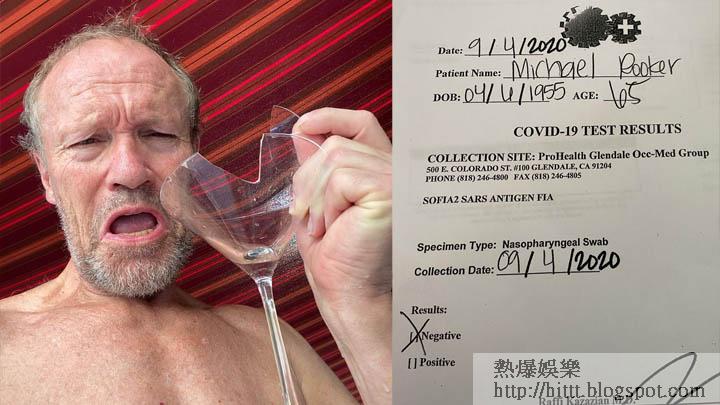 Date: 9/4/2020
Patient Name: Michael Rooker
DOB: 04/6/1955 AGE: 65
COVID-19 TEST RESULTS
COLLECTION SITE: ProHealth Glendale Occ-Med Group
500 E. COLORADO ST. #100 GLENDALE, CA 91204
PHONE (818) 246-4800 FAX (818) 246-4805
SOFIA2 SARS ANTIGEN FIA
Specimen Type: Nasopharyngeal Swab
Collection Date: 09/4/2020
Results:
[X] Negative
[ ] Positive
熱爆娛樂
http://bittt.blogspot.com
Raffi Kazazian M.D.